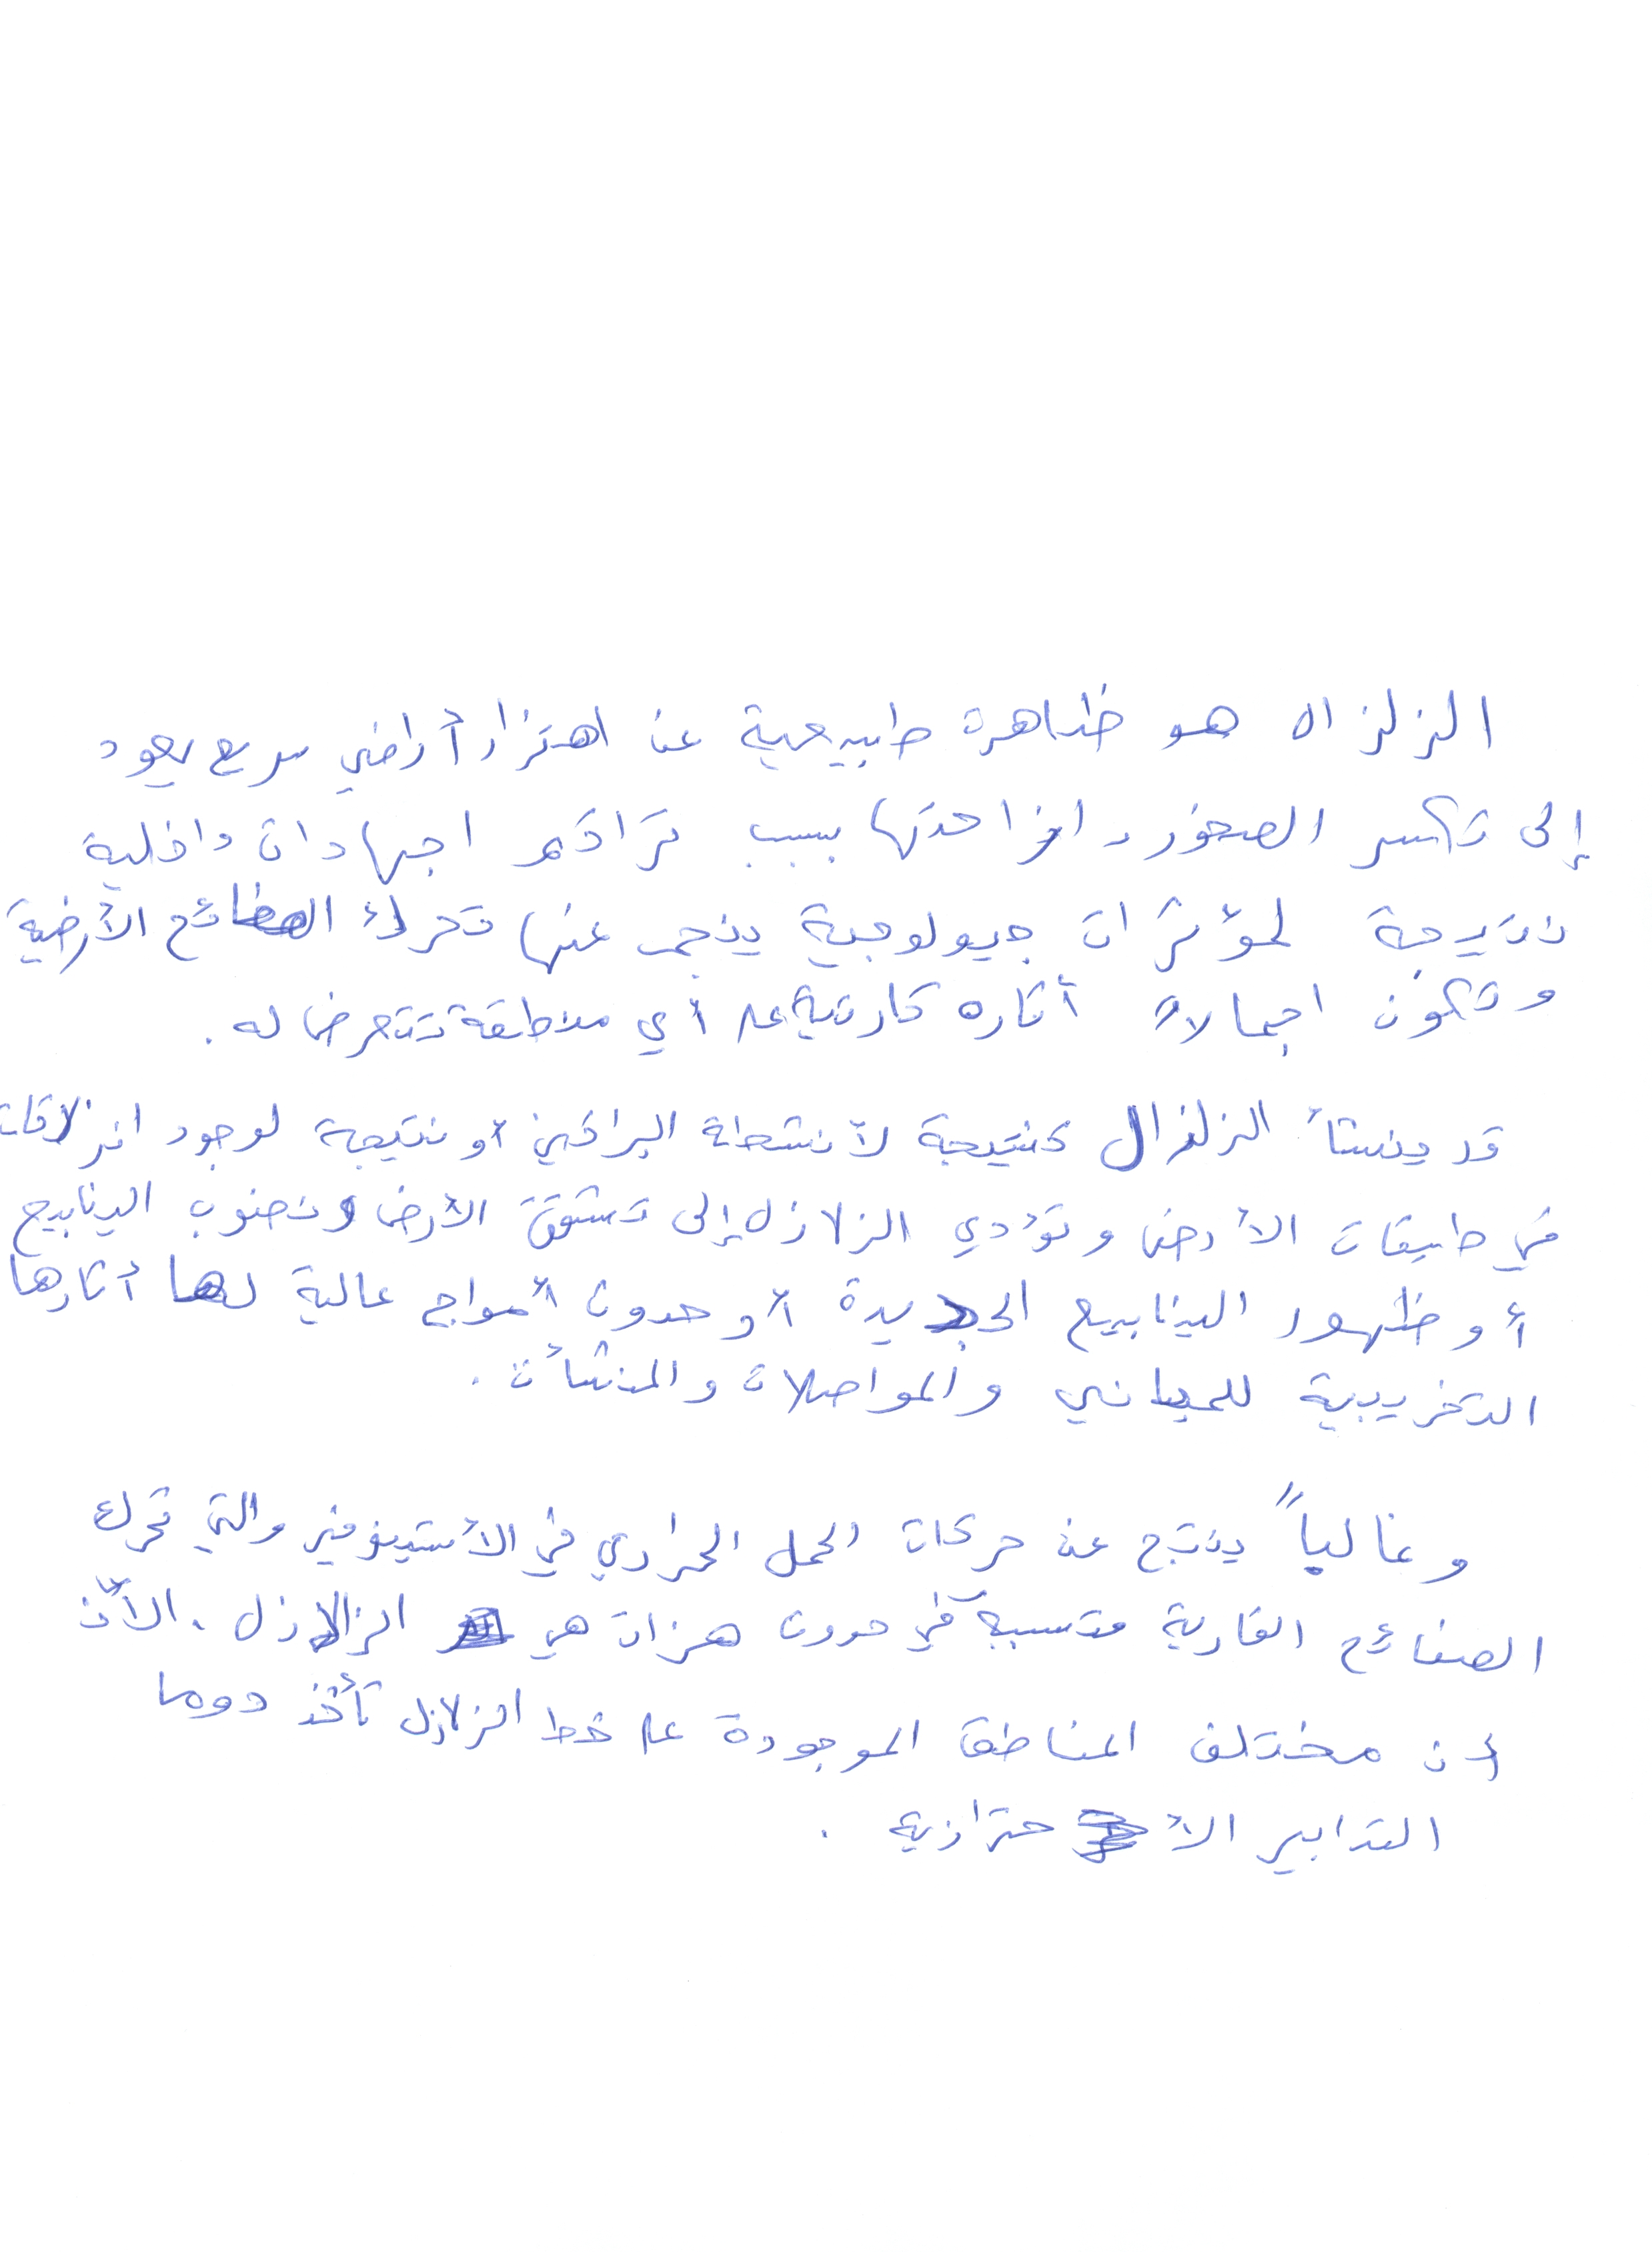 الزلزال هو ظاهرة طبيعية عن اهتزاز أراضي سريع يعود
إلى تكسر الصخور وازاحتها بسبب تراكم اجهادات داخلية
نتيجة لمؤثرات جيولوجية ينجم عنها تحرك الصفائح الأرضية
وتكون اجمالاً أثاره كارثية على أي منطقة تتعرض له .
قد ينشأ الزلزال كنتيجة لأنشطة البراكين أو نتيجة لوجود انزلاقات
في طبقات الأرض وتؤدي الزلازل إلى تشقق الأرض ونضوب الينابيع
أو ظهور الينابيع الجديدة أو حدوث أمواج عالية لها أثارها
التخريبية للمباني والمواصلات والمنشأت .
وغالباً ينتج عن حركات الحمل الحراري في الأستينوفير والتي تحرك
الصفائح القارية متسببة في حدوث هزات هي الزلازل . الأن
أن مختلف المناطق الموجودة على خط الزلازل تأخذ دوما
التدابير الأحترازية .